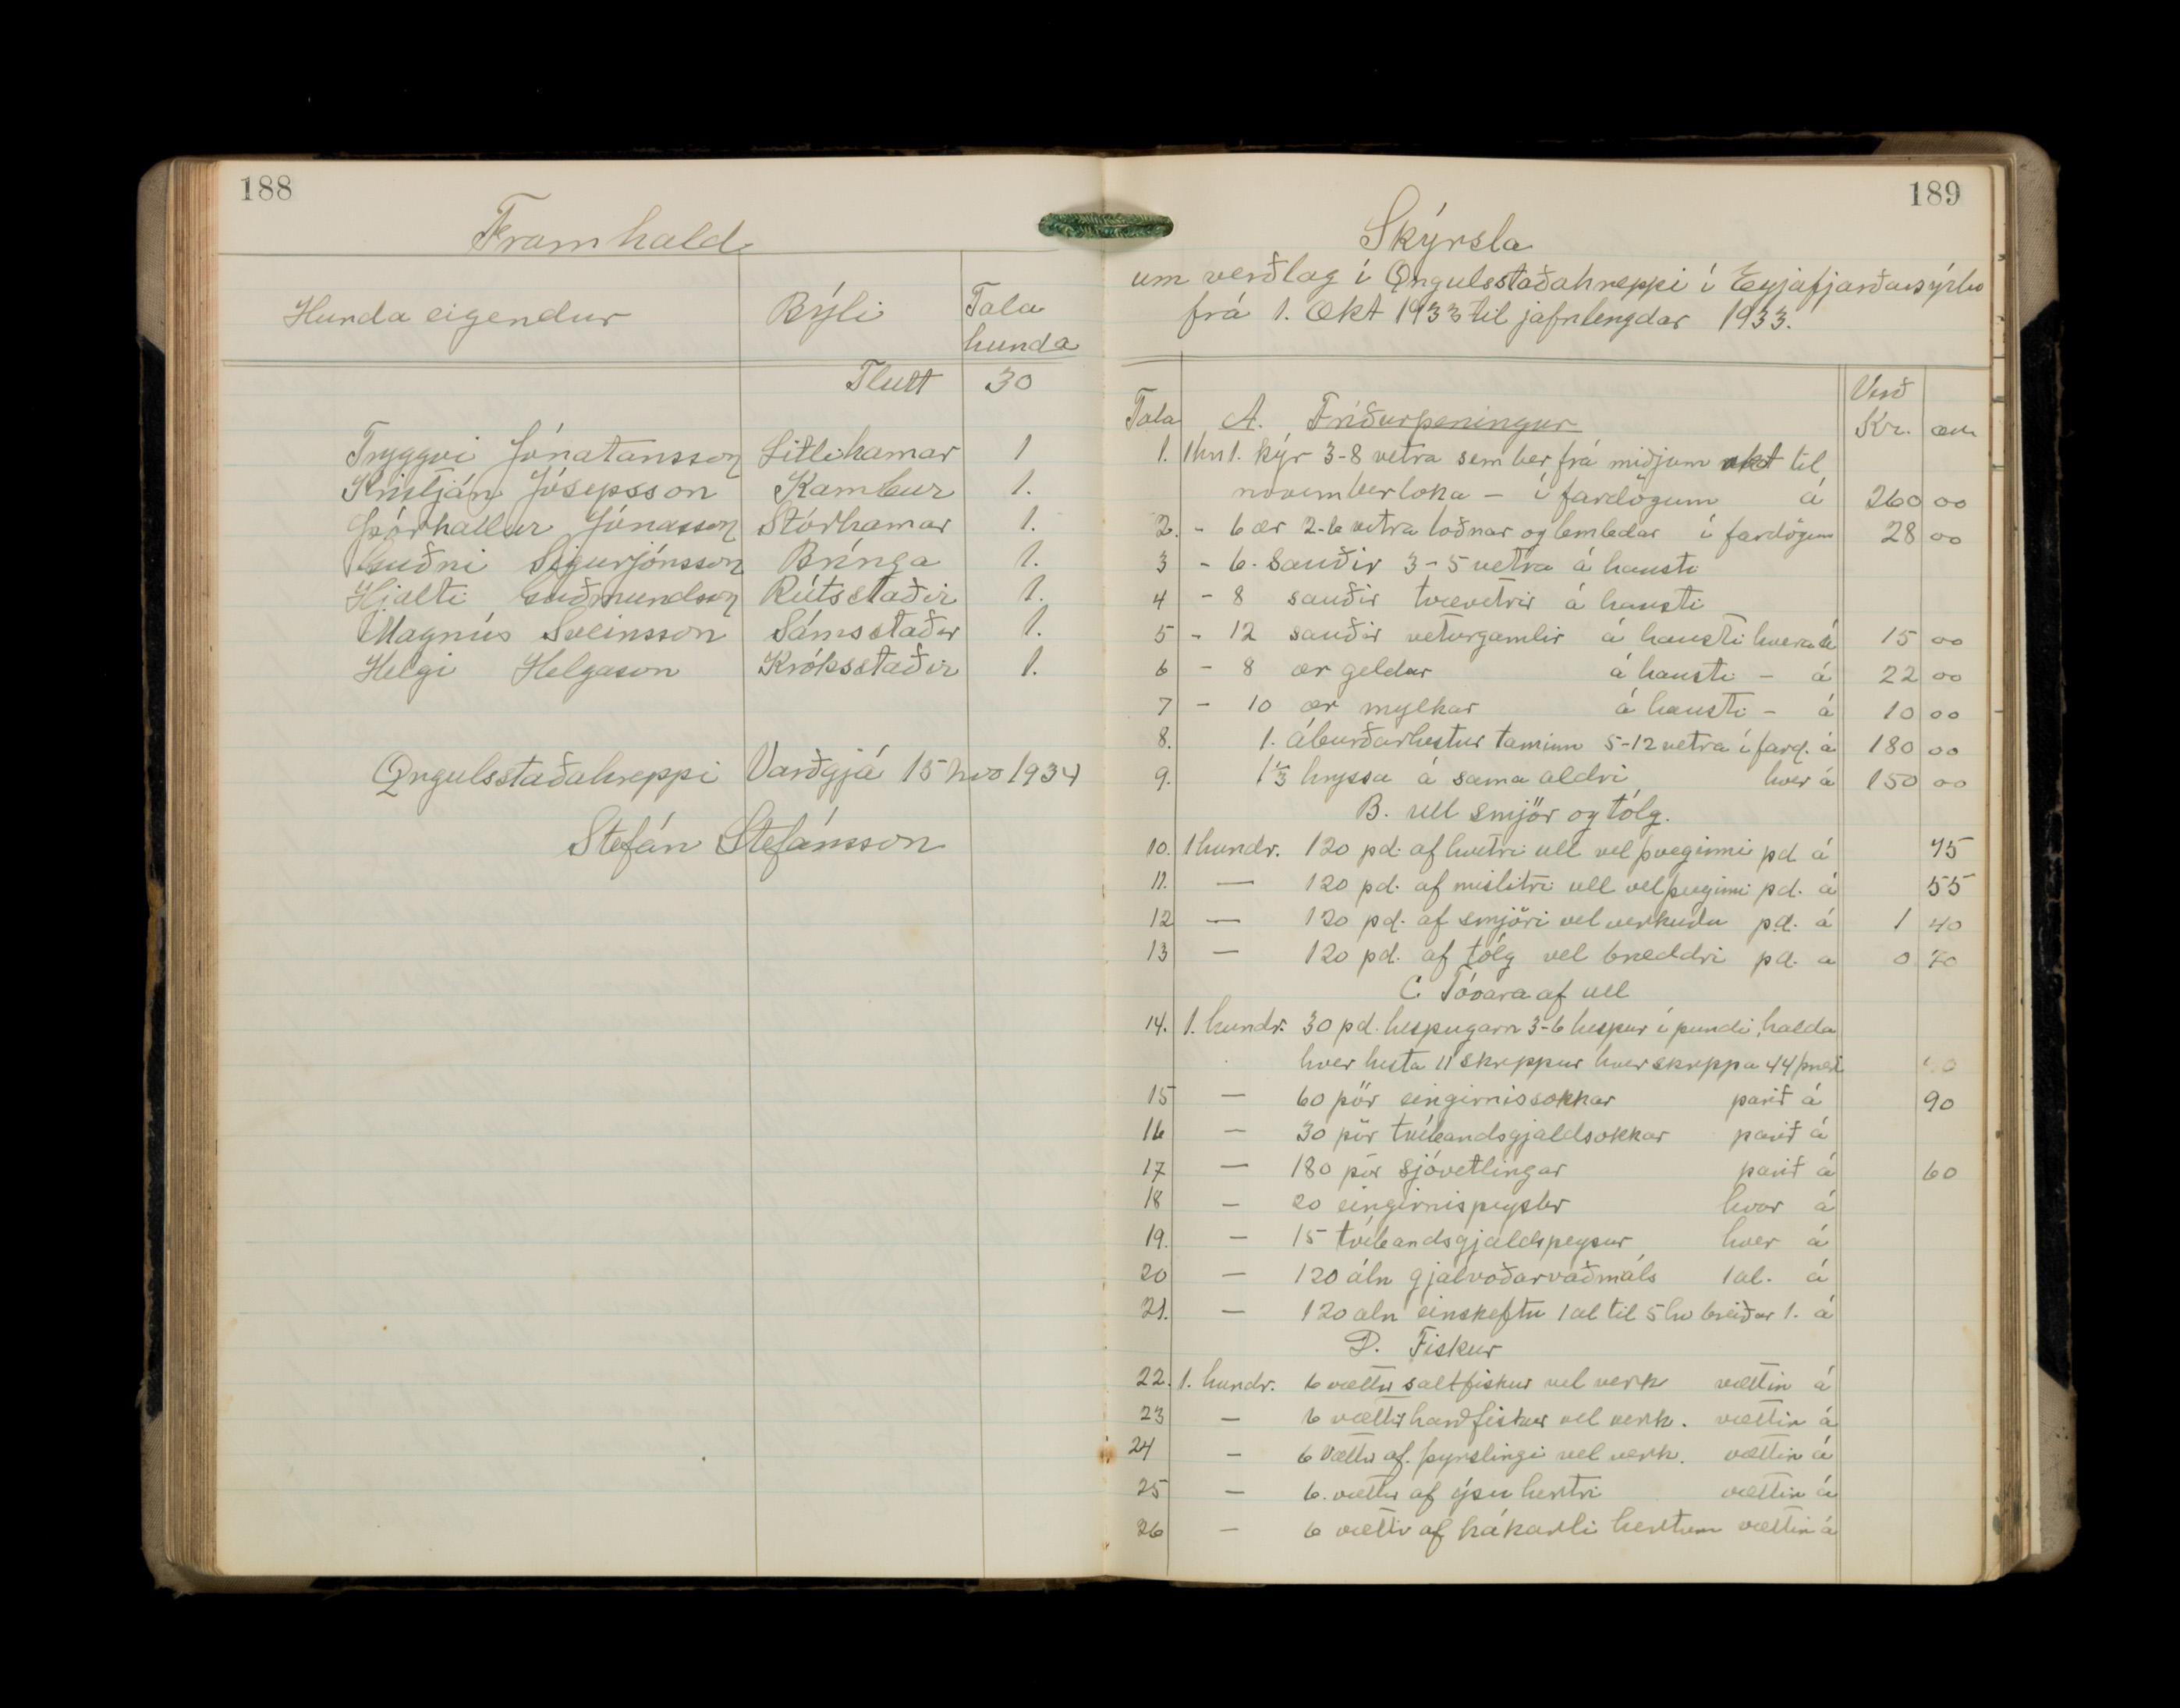 188
Framhald
Hunda eigendur Býli Tala
hunda
Flutt 30
Tryggvi Jónatansson Litlihamar 1
Kristján Jósepsson Kambur 1.
Þórhallur Jónasson Stórhamar 1.
Guðni Sigurjónsson Brínga 1.
Hjalti Guðmundson Rútsstaðir 1.
Magnús Sveinsson Sámsstaðir 1.
Helgi Helgason Króksstaðir 1.
Öngulsstaðahreppi Varðgjá 15 nvo 1934
Stefán Stefánsson
189
Skýrsla
um verðlag í Öngulsstaðahreppi í Eyjafjarðarsýslu
frá 1. Okt 1933 til jafnlengdar 1933.
Verð
Tala A. Fríðurpeningur Kr. aur
1. 1hn 1. kýr 3-8 vetra sem ber frá miðjum okt til
novemberloka - í fardögum á 260 00
2. - 6 ær 2-6 vetra loðnar og lembdar í fardögum 28 00
3 - 6. Sauðir 3-5 vetra á hausti
4 - 8 sauðir tvævetrir á hausti
5 - 12 sauðir veturgamlir á hausti hver á 15 00
6 - 8 ær geldar á hausti - á 22 00
7 - 10 ær mylkar á hausti - á 10 00
8. 1. áburðarhestur taminn 5-12 vetra í fard. á 180 00
9. 1⅓ hryssa á sama aldri hver á 150 00
B. Ull smjör og tólg.
10. 1 hundr. 120 pd. af hvítri ull vel þveginni pd á 75
11. — 120 pd. af mislitri ull vel þveginni pd. á 55
12 — 120 pd. af smjöri vel verkuðu pd. á 1 40
13 — 120 pd. af tólg vel bræddri pd. a 0 70
C. Tóvara af ull
14. 1. hundr. 30 pd. hespugarn 3-6 hespur í pundi, halda
hver hesta 11 skreppur hver skreppa 44 þræð
15 — 60 pör eingirnissokkar parið á 90
16 — 30 pör tvíbandsgjaldsokkar parið á
17 — 180 pör sjóvetlingar parið á 60
18 — 20 eingirnispeysur hver á
19. — 15 tvíbandsgjaldspeysur hver á
20 — 120 áln gjalvoðarvaðmáls 1 al. á
21. — 120 aln einskeftu 1 al til 5 kv breiðar 1. á
D. Fiskur
22. 1. hundr. 6 vættir saltfiskur vel verk vættin á
23 — 6 vættir harðfiskur vel verk. vættin á
24 — 6 vættir af. þyrslingi vel verk. vættin á
25 — 6. vættir af ýsu hertri vættin á
26 — 6 vættir af hákarli hertum vættin á